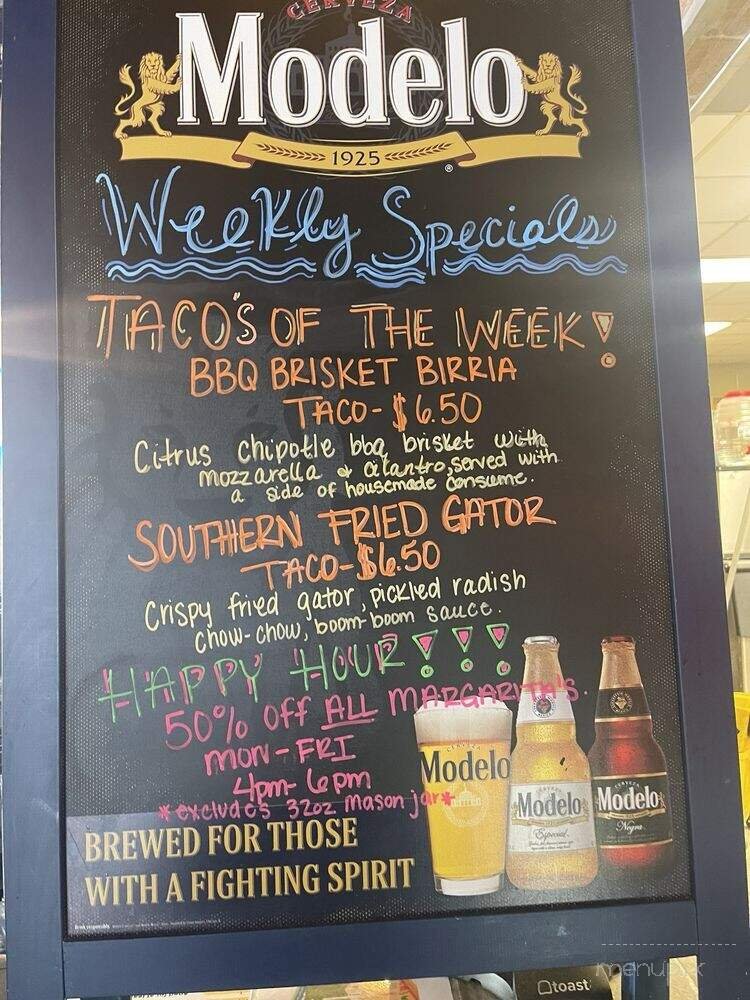 CERVEZA
Modelo
1925
®
Weekly Specials
TACO'S OF THE WEEK!
BBQ BRISKET BIRRIA
TACO-$6.50
Citrus chipotle bbq brisket with
mozzarella & cilantro, served with
a side of housemade consume.
SOUTHERN FRIED GATOR
TACO-$6.50
Crispy fried gator, pickled radish
chow-chow, boom-boom sauce.
HAPPY HOUR!!!
50% off ALL MARGARITA'S.
MON-FRI
4pm-6pm
*excludes 32oz mason jar*
Modelo
Modelo
Especial
Modelo
Negra
BREWED FOR THOSE
WITH A FIGHTING SPIRIT
Drink responsibly.
toast
menupix